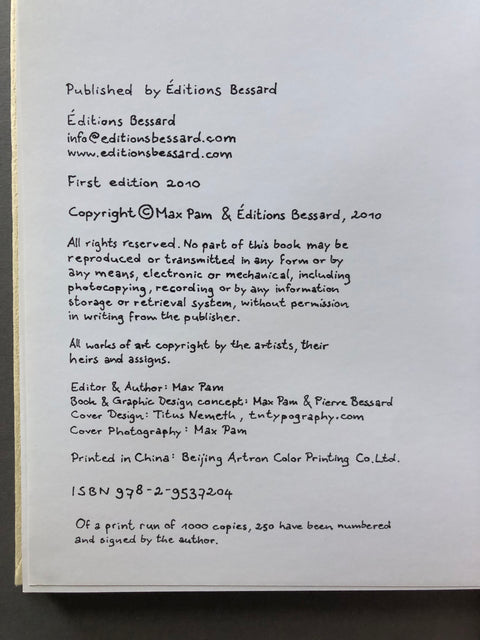 Published by Éditions Bessard
Éditions Bessard
info@editionsbessard.com
www.editionsbessard.com
First edition 2010
Copyright © Max Pam & Éditions Bessard, 2010
All rights reserved. No part of this book may be
reproduced or transmitted in any form or by
any means, electronic or mechanical, including
photocopying, recording or by any information
storage or retrieval system, without permission
in writing from the publisher.
All works of art copyright by the artists, their
heirs and assigns.
Editor & Author: Max Pam
Book & Graphic Design concept: Max Pam & Pierre Bessard
Cover Design: Titus Nemeth, tntypography.com
Cover Photography: Max Pam
Printed in China: Beijing Artron Color Printing Co.Ltd.
ISBN 978-2-9537204
Of a print run of 1000 copies, 250 have been numbered
and signed by the author.